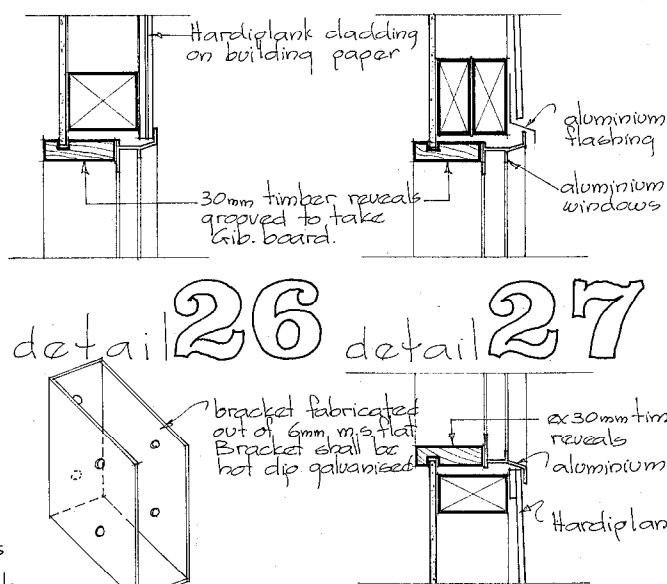 Hardiplank cladding
on building paper
aluminium
flashing
aluminium
windows
30mm timber reveals
grooved to take
Gib. board.
detail 26
detail 27
bracket fabricated
out of 6mm m.s flat
Bracket shall be
hot dip galvanised
ex 30mm tim
reveals
aluminium
Hardiplan
s